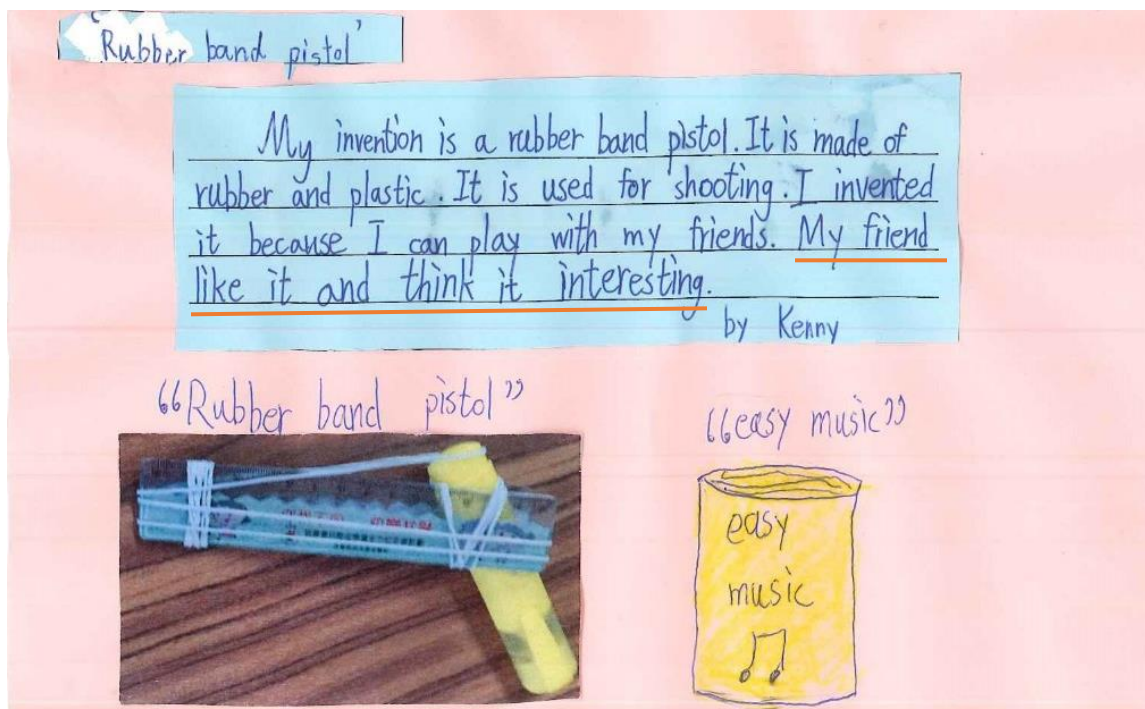 "Rubber band pistol"
My invention is a rubber band pistol. It is made of
rubber and plastic. It is used for shooting. I invented
it because I can play with my friends. My friend
like it and think it interesting.
by Kenny
"Rubber band pistol"
"easy music"
easy
music